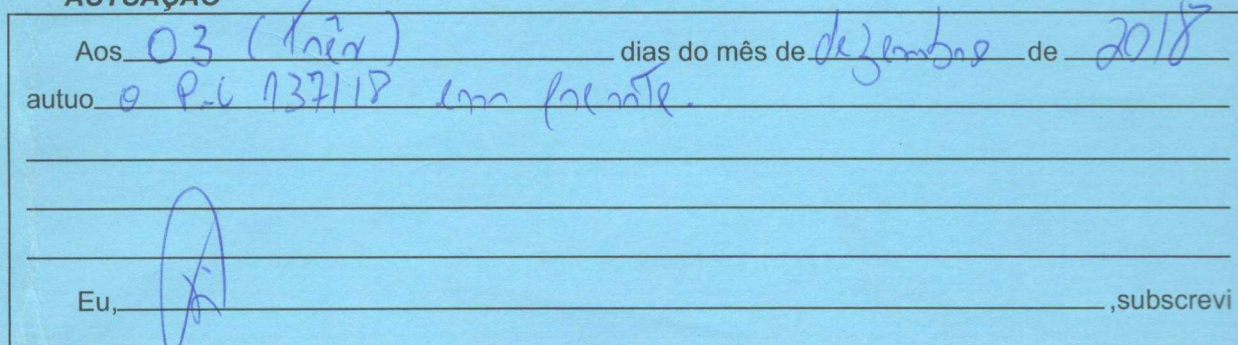 AUTUAÇÃO
Aos 03 (três) dias do mês de dezembro de 2018
autuo o P.L 137/18 em frente.
Eu, ,subscrevi